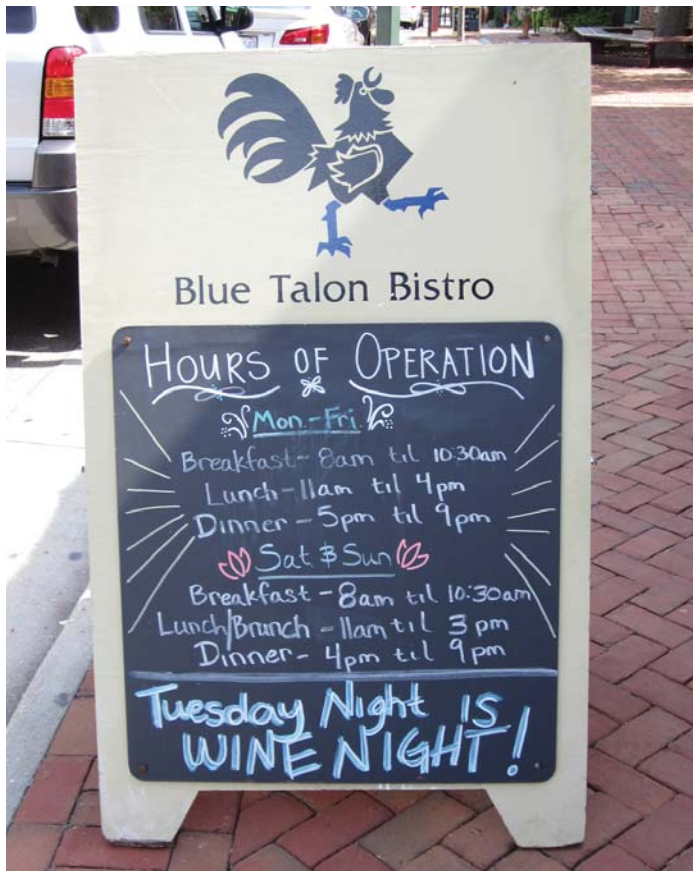 Blue Talon Bistro
HOURS OF OPERATION
Mon.-Fri.
Breakfast-8am til 10:30am
Lunch-11am til 4pm
Dinner-5pm til 9pm
Sat & Sun
Breakfast-8am til 10:30am
Lunch/Brunch-11am til 3pm
Dinner-4pm til 9pm
Tuesday Night IS
WINE NIGHT!